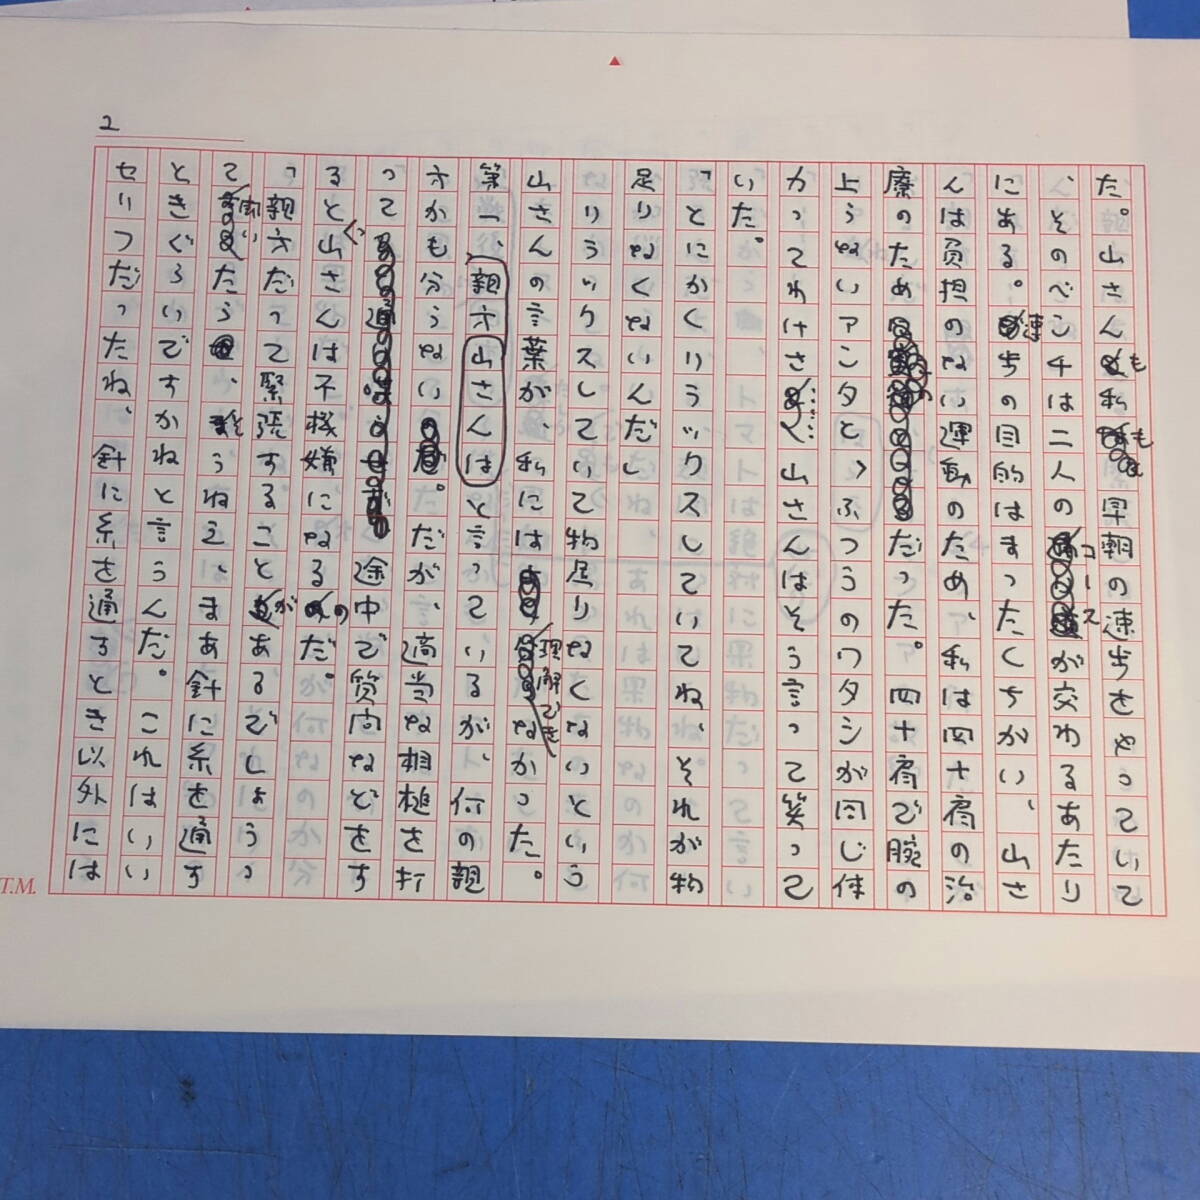 2
た。山さんも私も早朝の速歩をやっていて
、そのベンチは二人のコースが交わるあたり
にある。速歩の目的はまったくちがい、山さ
んは負担のない運動のため、私は四十肩の治
療のためだった。四十肩で腕の
上らないアンタとふつうのワタシが同じ体
力ってわけさ……山さんはそう言って笑って
いた。
「とにかくリラックスしていてね、それが物
足りなくないんだ」
リラックスしていて物足りなくないという
山さんの言葉が、私には理解できなかった。
第一、親方山さんはと言っているが、何の親
方かも分らない。だが、適当な相槌を打
って途中で質問などをす
ると山さんは不機嫌になるのだ。
「親方だって緊張することがあるでしょうっ
て聞いたら、そうねえ、まあ針に糸を通す
ときぐらいですかねと言うんだ。これはいい
セリフだったね。針に糸を通すとき以外には
T.M.